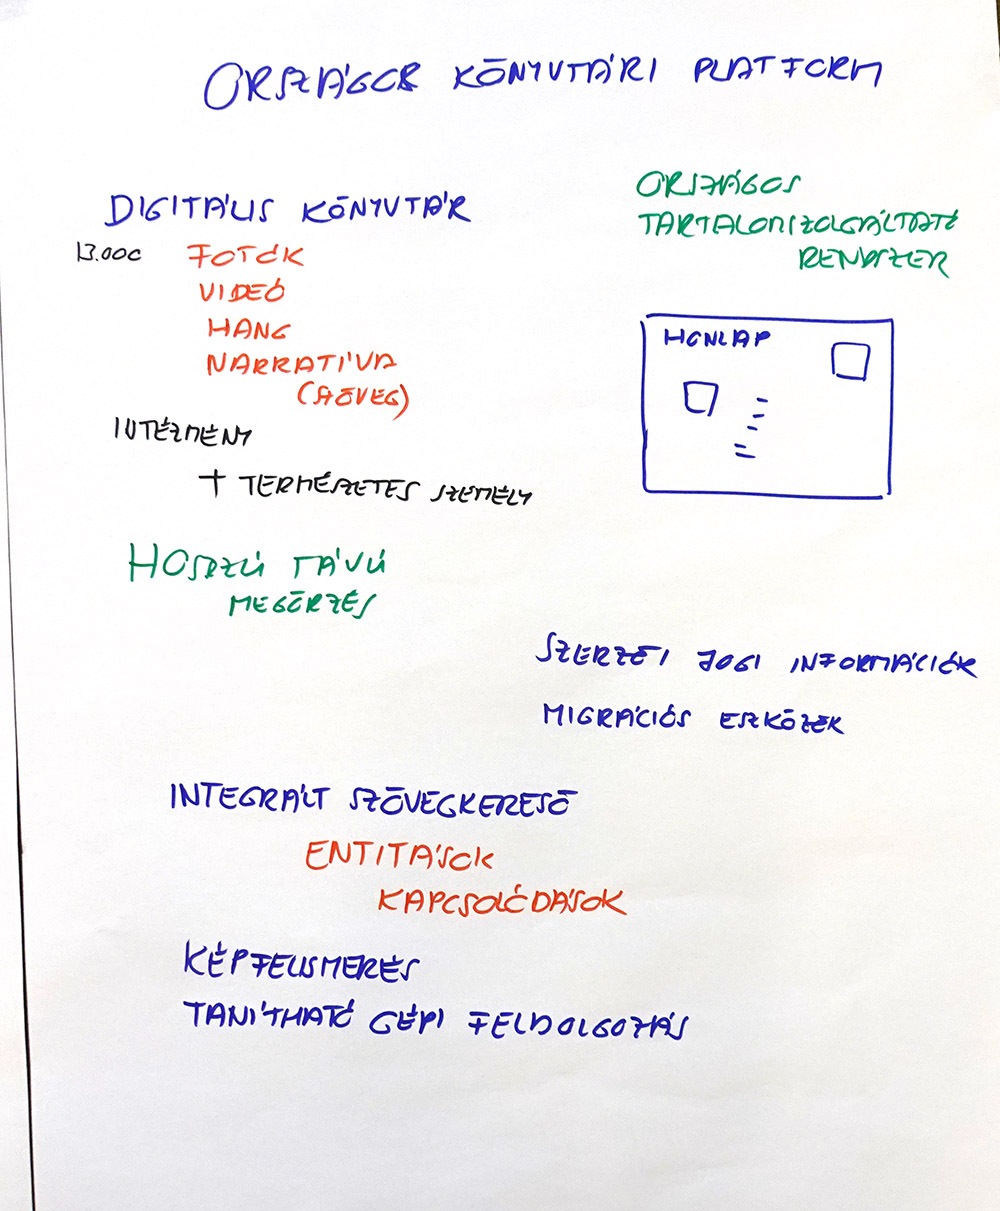 ORSZÁGOS KÖNYVTÁRI PLATFORM
DIGITÁLIS KÖNYVTÁR
13.000 FOTÓK
VIDEÓ
HANG
NARRATÍVA
(SZÖVEG)
INTÉZMÉNY
+ TERMÉSZETES SZEMÉLY
HOSSZÚ TÁVÚ
MEGŐRZÉS
ORSZÁGOS
TARTALOMSZOLGÁLTATÓ
RENDSZER
HONLAP
SZERZŐI JOGI INFORMÁCIÓK
MIGRÁCIÓS ESZKÖZÖK
INTEGRÁLT SZÖVEGKERESŐ
ENTITÁSOK
KAPCSOLÓDÁSOK
KÉPFELISMERÉS
TANÍTHATÓ GÉPI FELDOLGOZÁS